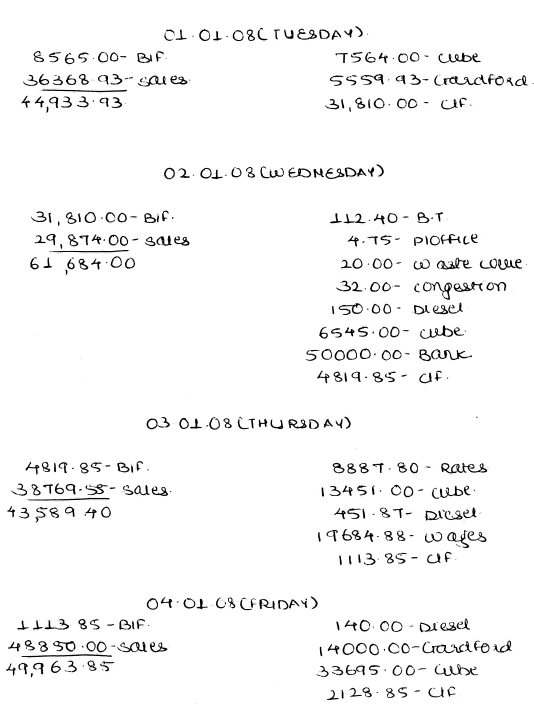 01.01.08 (TUESDAY)
8565.00- B/F.
36368.93- sales.
44,933.93
7564.00- cube
5559.93- Crardford.
31,810.00- C/F.
02.01.08 (WEDNESDAY)
31,810.00- B/F.
29,874.00- sales
61,684.00
112.40- B.T
4.75- P/Office
20.00- waste
32.00- congestion
150.00- Diesel
6545.00- cube
50000.00- Bank
4819.85- C/F.
03 01.08 (THURSDAY)
4819.85- B/F.
38769.55- sales.
43,589 40
8887.80- Rates
13451.00- cube.
451.87- Diesel
19684.88- wages
1113.85- C/F.
04.01.08 (FRIDAY)
1113 85- B/F.
48850.00- sales
49,963.85
140.00- Diesel
14000.00- Crardford
33695.00- cube
2128.85- C/F